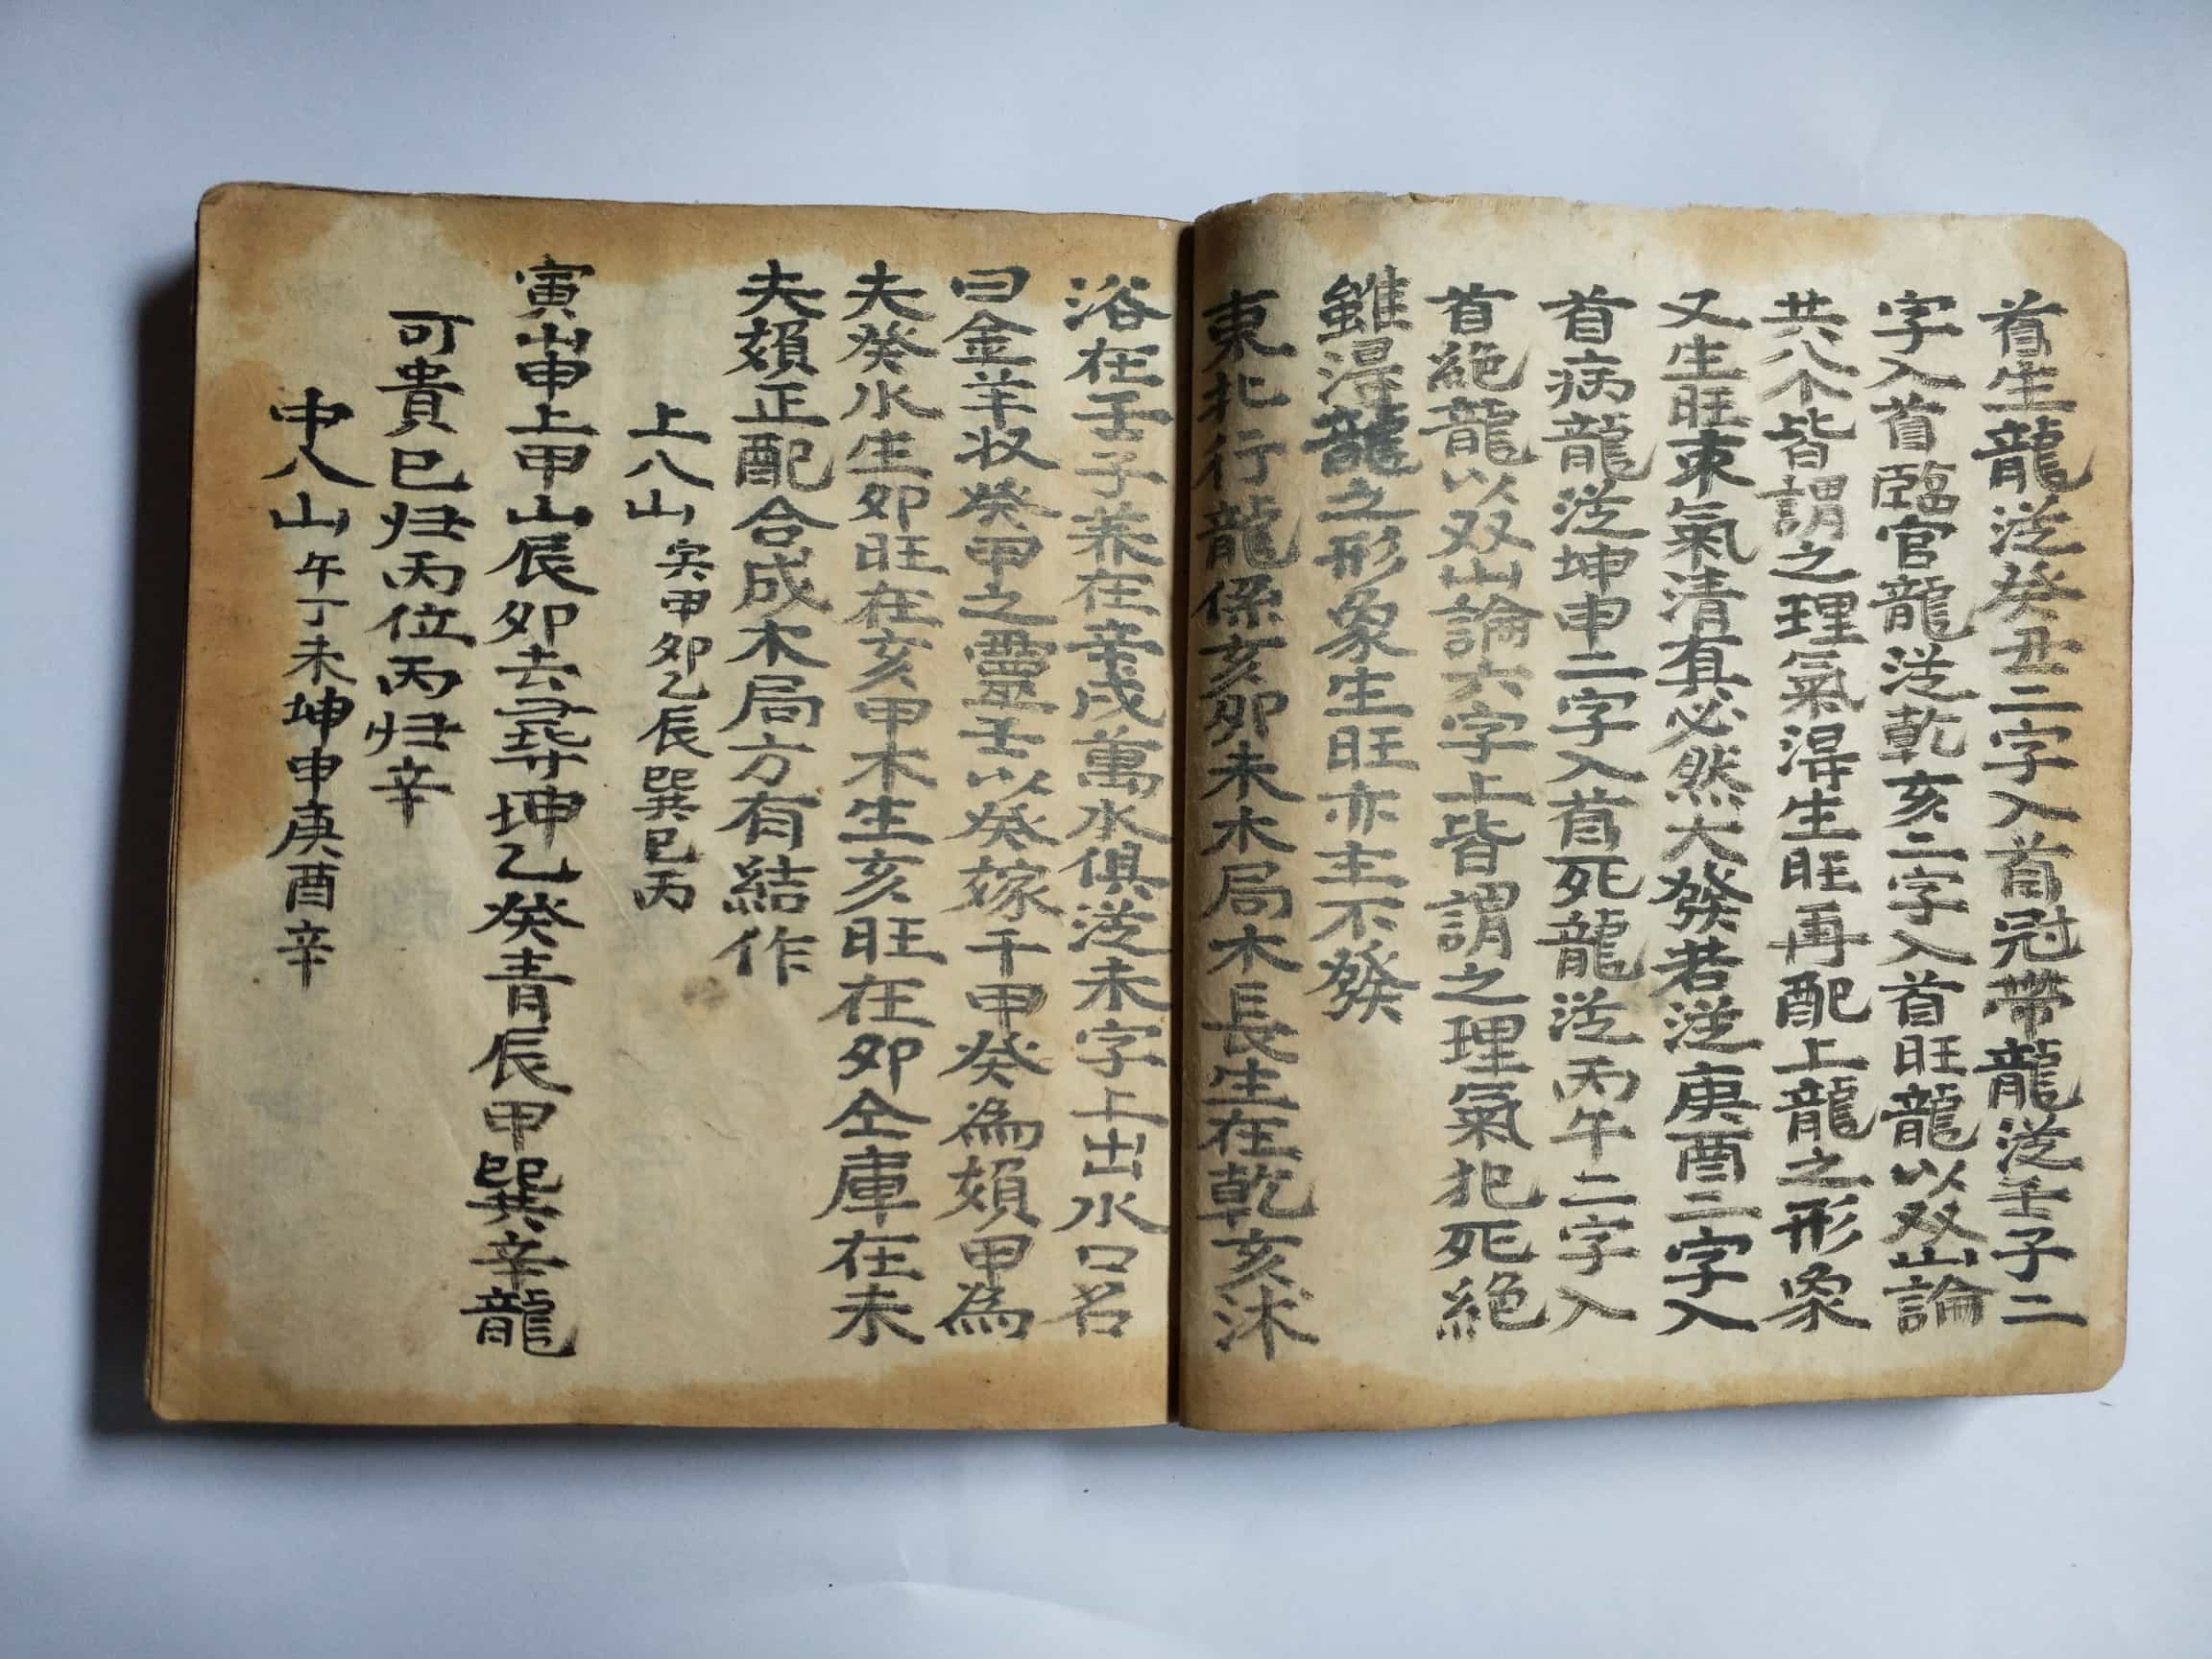 首生龍从癸丑二字入首冠帶龍从壬子二
字入首臨官龍从乾亥二字入首旺龍以双山論
共八个皆謂之理氣淂生旺再配上龍之形象
又生旺束氣清真必然大發若从庚酉二字入
首病龍从坤申二字入首死龍从丙午二字入
首絕龍以双山論六字上皆謂之理氣犯死絕
雖淂龍之形象生旺亦主不發
東北行龍係亥卯未木局木長生在乾亥沭
浴在壬子养在辛戌萬水俱从未字上出水口名
曰金羊收癸甲之靈壬以癸嫁干甲癸為頍甲為
夫癸水生卯旺在亥甲木生亥旺在卯仝庫在未
夫頍正配合成木局方有結作
上八山寅甲卯乙辰巽巳丙
寅山申上甲山辰卯去尋坤乙癸青辰甲巽辛龍
可貴巳归丙位丙归辛
中八山午丁未坤申庚酉辛